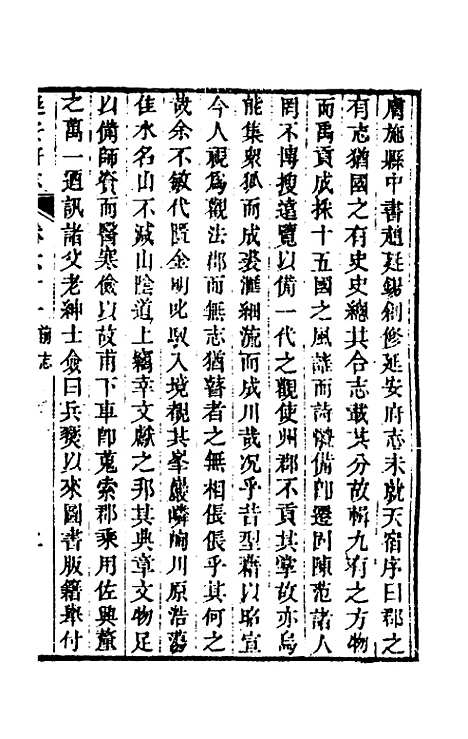 膚施縣中書趙廷錫創修延安府志未就天宿序曰郡之
有志猶國之有史史總其合志載其分故輯九有之方物
而禹貢成採十五國之風謠而詩體備即遷固陳范諸人
罔不博搜遠覽以備一代之觀使州郡不貢其掌故亦烏
能集衆狐而成裘滙細流而成川哉况乎昔型藉以昭宣
今人視爲觀法郡而無志猶瞽者之無相倀倀乎其何之
故余不敏代匱金明此馭入境觀其峯巖嶙峋川原浩蕩
佳水名山不減山陰道上竊幸文獻之邦其典章文物足
以備師資而醫寒儉以故甫下車即蒐索郡乘用佐興釐
之萬一廼訊諸父老紳士僉曰兵燹以來圖書版籍舉付
前志